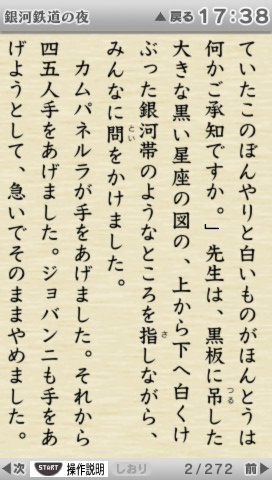 銀河鉄道の夜
▲戻る 17:38
ていたこのぼんやりと白いものがほんとうは
何かご承知ですか。」先生は、黒板に吊した
つる
大きな黒い星座の図の、上から下へ白くけ
ぶった銀河帯のようなところを指しながら、
さ
みんなに問をかけました。
とい
カムパネルラが手をあげました。それから
四五人手をあげました。ジョバンニも手をあ
げようとして、急いでそのままやめました。
◀次 START 操作説明 しおり 2/272 前▶